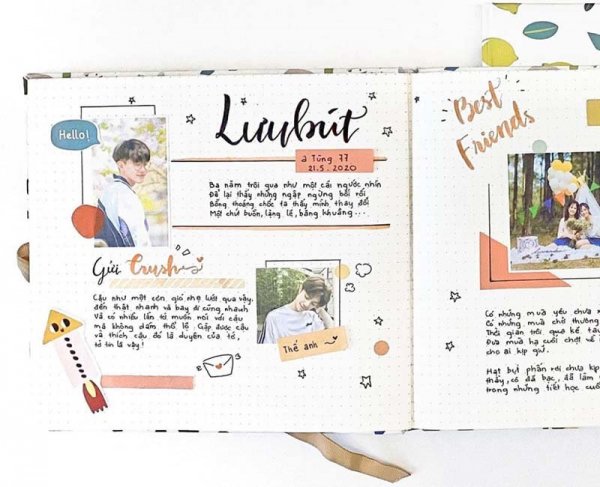 Hello!
Lưu bút
a Tùng 77
21.5.2020
Ba năm trôi qua như một cái ngước nhìn
Đã lại thấy những ngập ngừng bối rối
Bỗng thoáng chốc ta thấy mình thay đổi
Một chút buồn, lặng lẽ, bâng khuâng...
Gửi Crush
Cậu như một cơn gió nhẹ lướt qua vậy,
đến thật nhanh và bay đi cũng nhanh
Và có nhiều lần tớ muốn nói với cậu
mà không dám thổ lộ. Gặp được cậu
và thích cậu đó là duyên của tớ,
tớ tin là vậy!
Thế anh
Best
Friends
Có những mùa yêu chưa
Có những mùa chờ thương
Thời gian trôi qua kẽ
Đưa mùa hạ cuối chợt
cho ai kịp giữ.
Hạt bụi phấn rơi chưa kịp
thầy, cô đã bạc, đã làm
trong những tiết học cuối